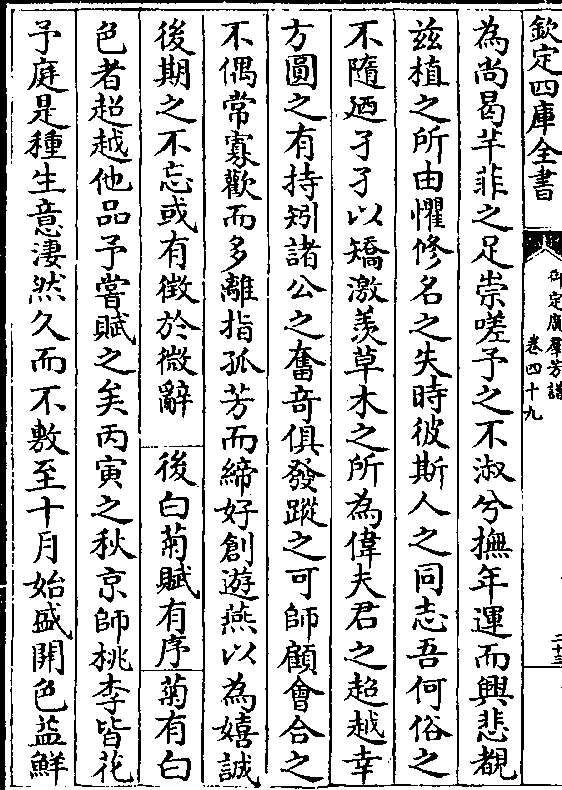 欽定四庫全書
御定廣羣芳譜
卷四十九
二十三
為尚曷芊菲之足崇嗟予之不淑兮撫年運而興悲覩
茲植之所由懼修名之失時彼斯人之同志吾何俗之
不隨廼孑孑以矯激羨草木之所為偉夫君之超越幸
方圓之有持矧諸公之奮竒俱發蹤之可師顧會合之
不偶常寡歡而多離指孤芳而締好創遊燕以為嬉誠
後期之不忘或有徴於微辭 後白菊賦有序 菊有白
色者超越他品予嘗賦之矣丙寅之秋京師桃李皆花
予庭是種生意淒然久而不敷至十月始盛開色益鮮